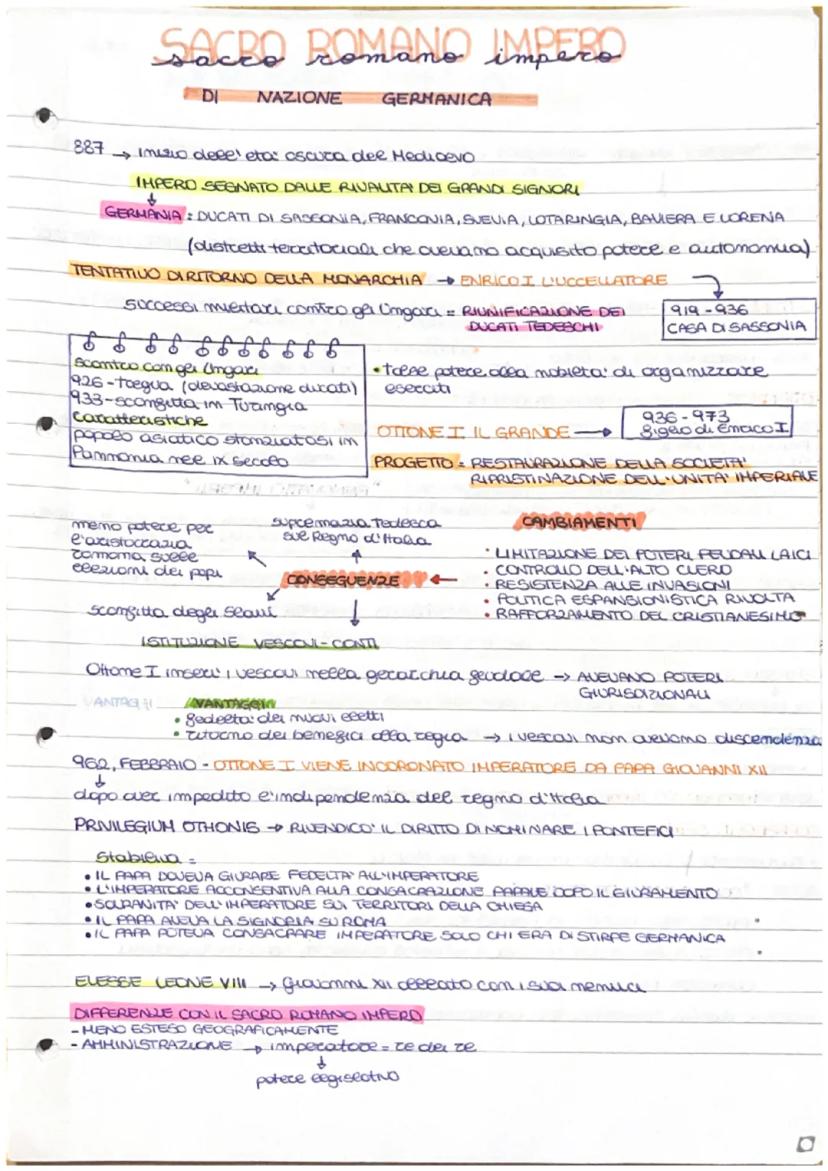 SACRO ROMANO IMPERO
sacro romano impero
DI NAZIONE GERMANICA
887 → inizio dell'età oscura del Medioevo
IMPERO SEGNATO DALLE RIVALITA' DEI GRANDI SIGNORI
GERMANIA: DUCATI DI SASSONIA, FRANCONIA, SVEVIA, LOTARINGIA, BAVIERA E LORENA
(distretti territoriali che avevano acquisito potere e autonomia)
TENTATIVO DI RITORNO DELLA MONARCHIA → ENRICO I L'UCCELLATORE
successi militari contro gli Ungari = RIUNIFICAZIONE DEI
DUCATI TEDESCHI
919-936
CASA DI SASSONIA
scontro con gli Ungari
926-tregua (devastazione ducati)
933-sconfitta in Turingia
caratteristiche
popolo asiatico stanziatosi in
Pannonia nel IX secolo
• tolse potere alla nobiltà di organizzare
eserciti
OTTONE I IL GRANDE →
936-973
figlio di Enrico I
PROGETTO = RESTAURAZIONE DELLA SOCIETA'
RIPRISTINAZIONE DELL'UNITA' IMPERIALE
meno potere per
l'aristocrazia
romana sulle
elezioni dei papi
supremazia tedesca
sul Regno d'Italia
CONSEGUENZE
sconfitta degli slavi
CAMBIAMENTI
• LIMITAZIONE DEI POTERI FEUDALI LAICI
• CONTROLLO DELL'ALTO CLERO
• RESISTENZA ALLE INVASIONI
• POLITICA ESPANSIONISTICA RIVOLTA
• RAFFORZAMENTO DEL CRISTIANESIMO
ISTITUZIONE VESCOVI-CONTI
Ottone I inserì i vescovi nella gerarchia feudale → AVEVANO POTERI
GIURISDIZIONALI
VANTAGGI
• fedeltà dei nuovi eletti
• ritorno dei benefici alla regia → i vescovi non avevano discendenza
962, FEBBRAIO - OTTONE I VIENE INCORONATO IMPERATORE DA PAPA GIOVANNI XII
dopo aver impedito l'indipendenza del regno d'Italia
PRIVILEGIUM OTHONIS → RIVENDICO' IL DIRITTO DI NOMINARE I PONTEFICI
Stabiliva =
• IL PAPA DOVEVA GIURARE FEDELTA' ALL'IMPERATORE
• L'IMPERATORE ACCONSENTIVA ALLA CONSACRAZIONE PAPALE DOPO IL GIURAMENTO
• SOVRANITA' DELL'IMPERATORE SUI TERRITORI DELLA CHIESA
• IL PAPA AVEVA LA SIGNORIA SU ROMA
• IL PAPA POTEVA CONSACRARE IMPERATORE SOLO CHI ERA DI STIRPE GERMANICA
ELESSE LEONE VIII → Giovanni XII alleato con i suoi nemici
DIFFERENZE CON IL SACRO ROMANO IMPERO
- MENO ESTESO GEOGRAFICAMENTE
- AMMINISTRAZIONE → imperatore = re dei re
potere legislativo